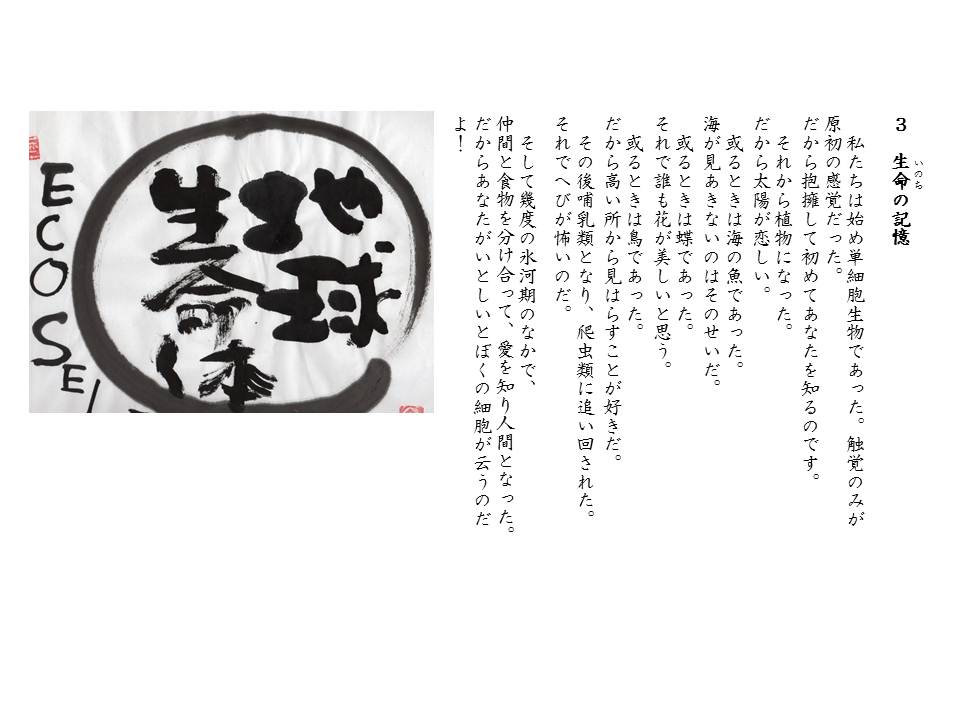 3 生命の記憶
いのち
私たちは始め単細胞生物であった。触覚のみが
原初の感覚だった。
だから抱擁して初めてあなたを知るのです。
それから植物になった。
だから太陽が恋しい。
或るときは海の魚であった。
海が見あきないのはそのせいだ。
或るときは蝶であった。
それで誰も花が美しいと思う。
或るときは鳥であった。
だから高い所から見はらすことが好きだ。
その後哺乳類となり、爬虫類に追い回された。
それでへびが怖いのだ。
そして幾度の氷河期のなかで、
仲間と食物を分け合って、愛を知り人間となった。
だからあなたがいとしいとぼくの細胞が云うのだ
よ！
地球
生命
体
ECOSE